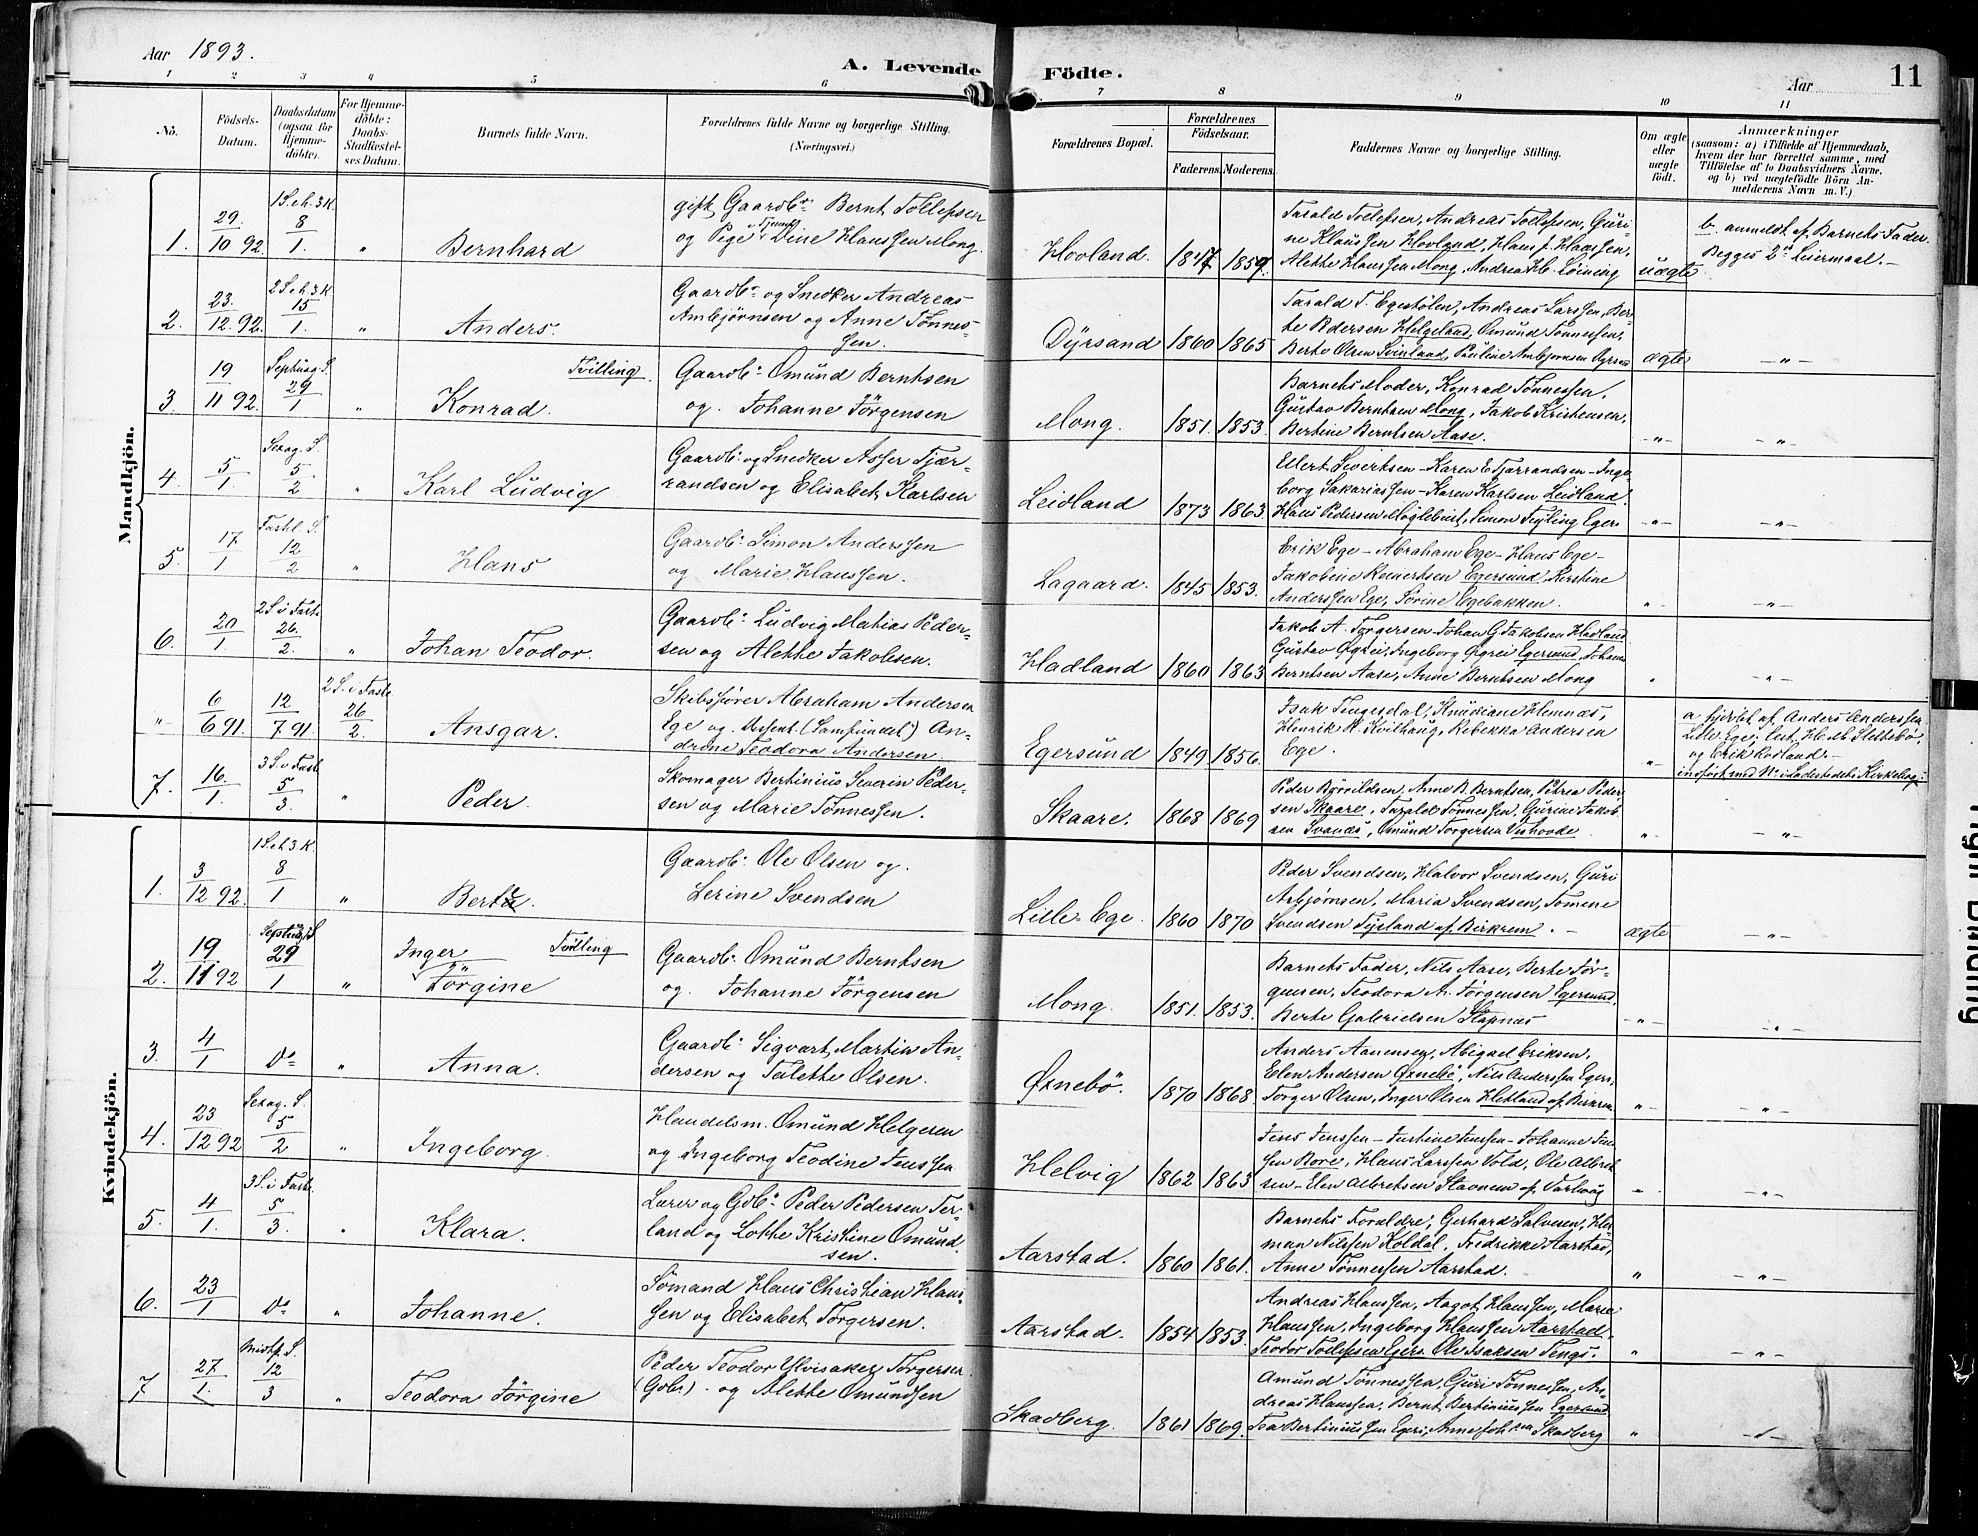 Aar 1893.
A. Levende Födte.
Aar
11
1 2 3 4 5 6 7 8 9 10 11
No.
Födsels-Datum.
Daabsdatum (ogsaa for Hjemmedöbte).
For Hjemmedöbte: Daabs-Stadfæstelses Datum.
Barnets fulde Navn.
Forældrenes fulde Navne og borgerlige Stilling. (Næringsvei.)
Forældrenes Bopæl.
Forældrenes Födselsaar.
Faderens. Moderens.
Faddernes Navne og borgerlige Stilling.
Om ægte eller uægte født.
Anmærkninger
(saasom: a) i Tilfælde af Hjemmedaab,
hvem der har forrettet samme, med
Tilföielse af to Daabsvidners Navne.
og b) ved uægtefödte Börn An-
melderens Navn m. V.)
Mandkjön.
1. 29/10 92. 1 S. e. h. 3 K. 8/1. " Bernhard
gift Gaardbr. Bernt Tollefsen
og Pige Dine Hanssen Mong.
Hovland. 1847 1859.
Tarald Tollefsen, Andreas Tollefsen, Guri-
ne Klaussen Hovland, Hans J. Hanssen,
Alette Hanssen Mong, Andrea H.
uægte
b. anmeldt af Barnets Fader.
Begges 2det Leiermaal.
2. 23./12. 92. 2 S. e. h. 3 K. 15/1. " Anders.
Gaardbr. og Snedker Andreas
Ambjørnsen og Anne Tønnes-
sen.
Dyrsand 1860 1865
Tarald T. Egestølen, Andreas Larssen, Ber-
te Pedersen Helgeland, Omund Tønnessen,
Berte Olsen Svinland, Pauline Ambjørnsen
ægte
– " –
3. 19/11 92. Septuag. S. 29/1 " Konrad. Tvilling.
Gaardbr. Omund Berntsen
og Johanne Jörgensen
Mong. 1851. 1853.
Barnets Moder, Konrad Tønnessen,
Gustav Berntsen Mong, Jakob Kristensen,
Bertine Berntsen Aase.
– " – – " –
4. 5/1 Sexag. S. 5/2 " Karl Ludvig
Gaardbr. og Snedker Asser Tjær-
randsen og Elisabet Karlsen
Leidland 1873 1863
Ellert Sivertsen – Karen E. Tjærrandsen – Inge-
borg Sakariassen – Karen Karlsen Leidland.
Hans Pedersen Møgleburt, Simon Egers
– " – – " –
5. 17/1 Fastl. S. 12/2 " Hans
Gaardbr. Simon Anderssen
og Marie Hanssen.
Lagaard. 1845 1853.
Erik Ege – Abraham Ege – Hans Ege –
Jakobine Reinertsen Egersund, Kirstine
Anderssen Ege, Sörine Egebakken.
" – – " –
6. 20/1. 2 S. i Faste 26./2. " Johan Teodor.
Gaardbr. Ludvig Mathias Peder-
sen og Alette Jakobsen.
Hadland 1860 1863
Jakob A. Torgersen – Johan G. Jakobsen Hadland
Gustav Øgrei, Ingeborg Øgrei Egersund, Johan
Berntsen Aase, Anne Berntsen Mong
" – " –
" 6/6 91. 12/7 91 2 S. i Faste 26/2. Ansgar.
Skibsfører Abraham Andersen
Ege og An-
drine Teodora Andersen.
Egersund 1849 1856.
Isak Tengesdal, Knudiane Hemnæs,
Henrik A. Kvilhaug, Rebekka Andersen
Ege.
– " –
a. hjdøbt af Anders Anderssen
Lille Ege,
og Erik Rodland. –
indført med No. i Ladestedets Kirkebog.
7. 16./1. 3 S. i Faste 5/3. " Peder.
Skomager Bertinius Severin Peder-
sen og Marie Tønnessen.
Skaare. 1868 1869
Peder Anne B. Berntsen, Petrea Peder-
sen Skaare, Tarald Tønnessen, Gurine Jakob-
sen Svanæs, Omund Torgersen
" – – " –
Kvindekjön.
1. 3/12 92. 1 S. e. h. 3 K. 8/1 " Berte.
Gaardbr. Ole Olsen og
Serine Svendsen
Lille-Ege. 1860 1870
Peder Svendsen, Halvor Svendsen, Guri
Asbjørnsen, Maria Svendsen, Tomine
Svendsen Tysland af Birkrem. –
ægte
– " –
2. 19./11 92 Septuag. S. 29/1 " Inger Jörgine Tvilling
Gaardbr. Omund Berntsen
og Johanne Jörgensen
Mong. 1851. 1853.
Barnets Fader, Nils Aase, Berte Jör-
gensen, Teodora A. Jørgensen Egersund,
Berte Gabrielsen Stapnæs
– " – – " –
3. 4/1 Do " Anna.
Gaardbr. Sigvart Martin An-
dersen og Talette Olsen.
Øxnebö. 1870 1868
Anders Aanensen, Abigael Eriksen,
Elen Andersen Øxnebö, Nils Anderssen Egers,
Torger Olsen, Inger Olsen Hetland af Birkrem
" – – " –
4. 23/12 92 Sexag. S. 5/2 " Ingeborg.
Handelsm. Omund Helgesen
og Ingeborg Teodine Jenssen
Helvig 1862 1863
Jens Jenssen – Justine Jenssen – Johanne Jens-
sen Bore, Hans Larssen Vold, Ole Albret-
sen – Elen Albretsen Stavnem af Varhaug
" – " –
5. 4/1. 3 S. i Faste. 5/3. " Klara.
Lærer og Gbr. Peder Pedersen Ter-
land og Lotte Kristine Omund-
sen.
Aarstad. 1860 1861.
Barnets Forældre, Gerhard Salvesen, Her-
man Nilssen Koldal, Fredrikke Aarstad,
Anne Tønnessen Aarstad.
" – " –
6. 23/1 Do " Johanne.
Sömand Hans Christian Hans-
sen og Elisabet Torgersen.
Aarstad. 1854 1853.
Andreas Hanssen, Aagot Hanssen, Maria
Hanssen, Ingeborg Hanssen Aarstad
Teodor Tollefsen Egers. Ole Isaksen Tengs.
" – " –
7. 27/1. Midtf. S. 12/3 " Teodora Jörgine
Peder Teodor Ulvisaker Torgersen
(Gbr.). og Alette Omundsen
Skadberg. 1861 1869.
Omund Tønnessen, Guri Tønnessen, An-
dreas Hanssen, Bernt Bertiniussen Egersund
Tea Bertiniussen Egers, Anne Johnsen Skadberg
"